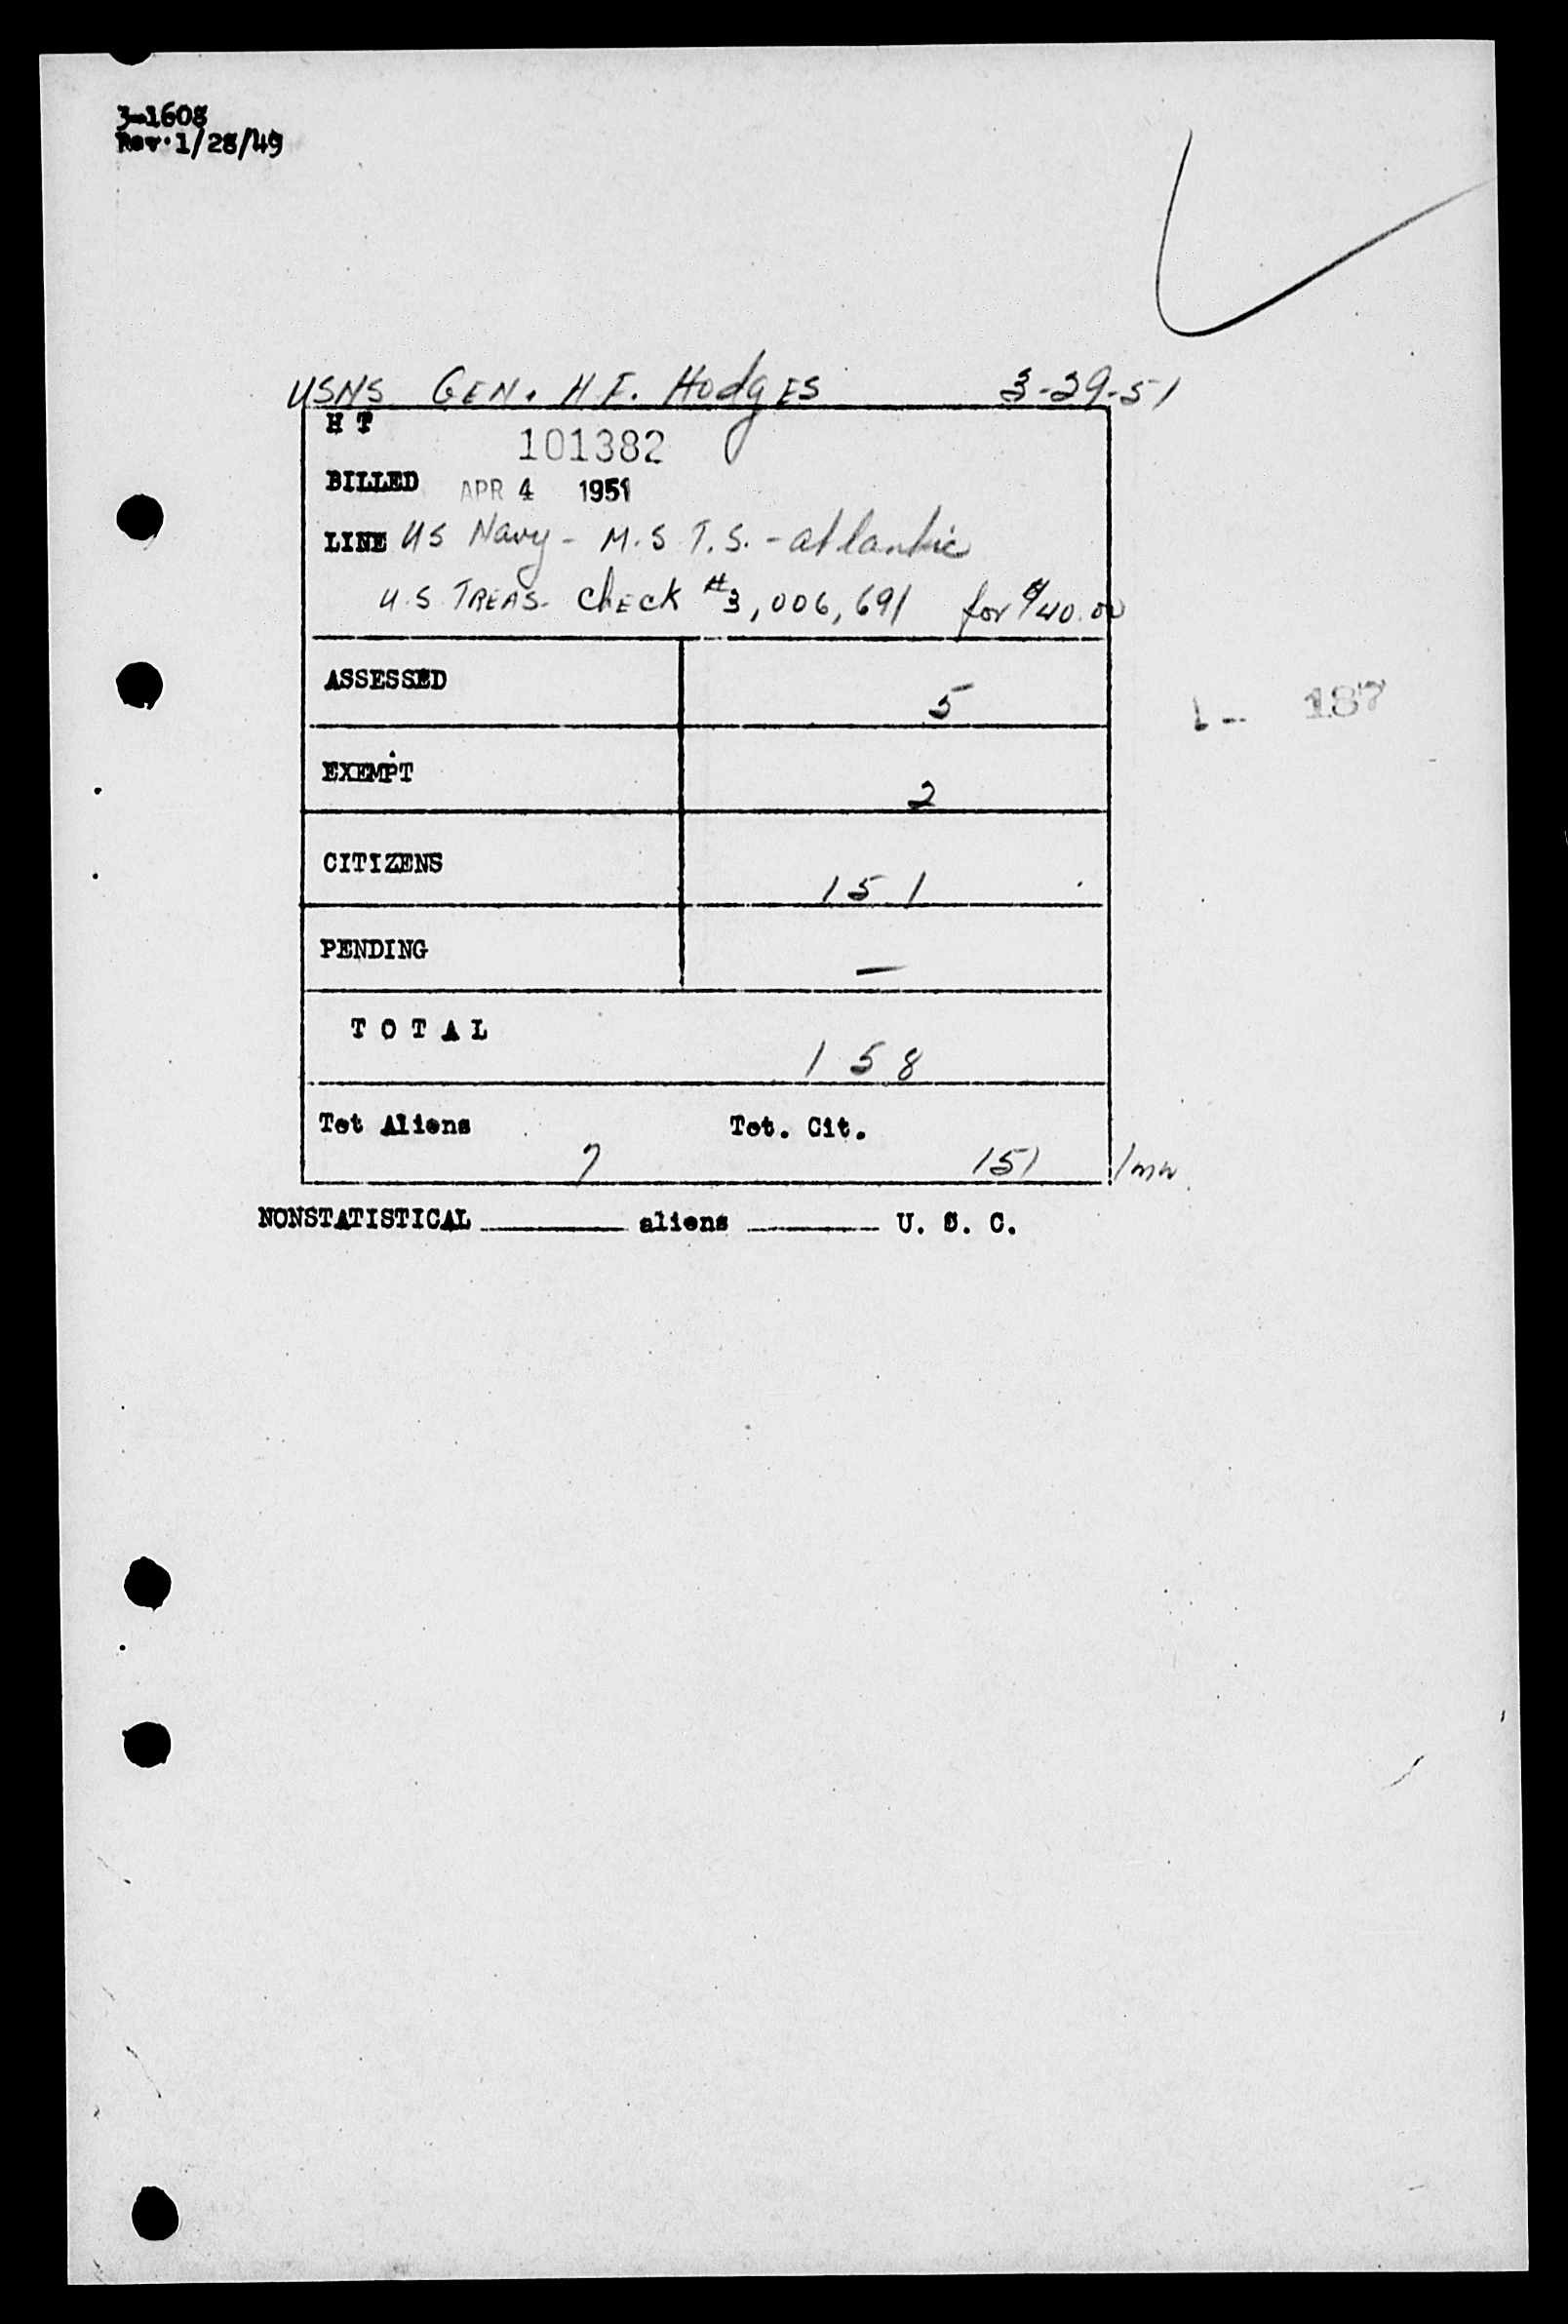 3-1608
Rev. 1/28/49
USNS GEN. H.F. HodgES 3-29-51
H T 101382
BILLED APR 4 1951
LINE US Navy - M.S.T.S. - atlantic
U.S TREAS. ChEck #3,006,691 for $40.00
ASSESSED 5
1- 187
EXEMPT 2
CITIZENS 151
PENDING —
T O T A L 158
Tot Aliens 7 Tot. Cit. 151
NONSTATISTICAL ______ aliens ______ U. S. C.